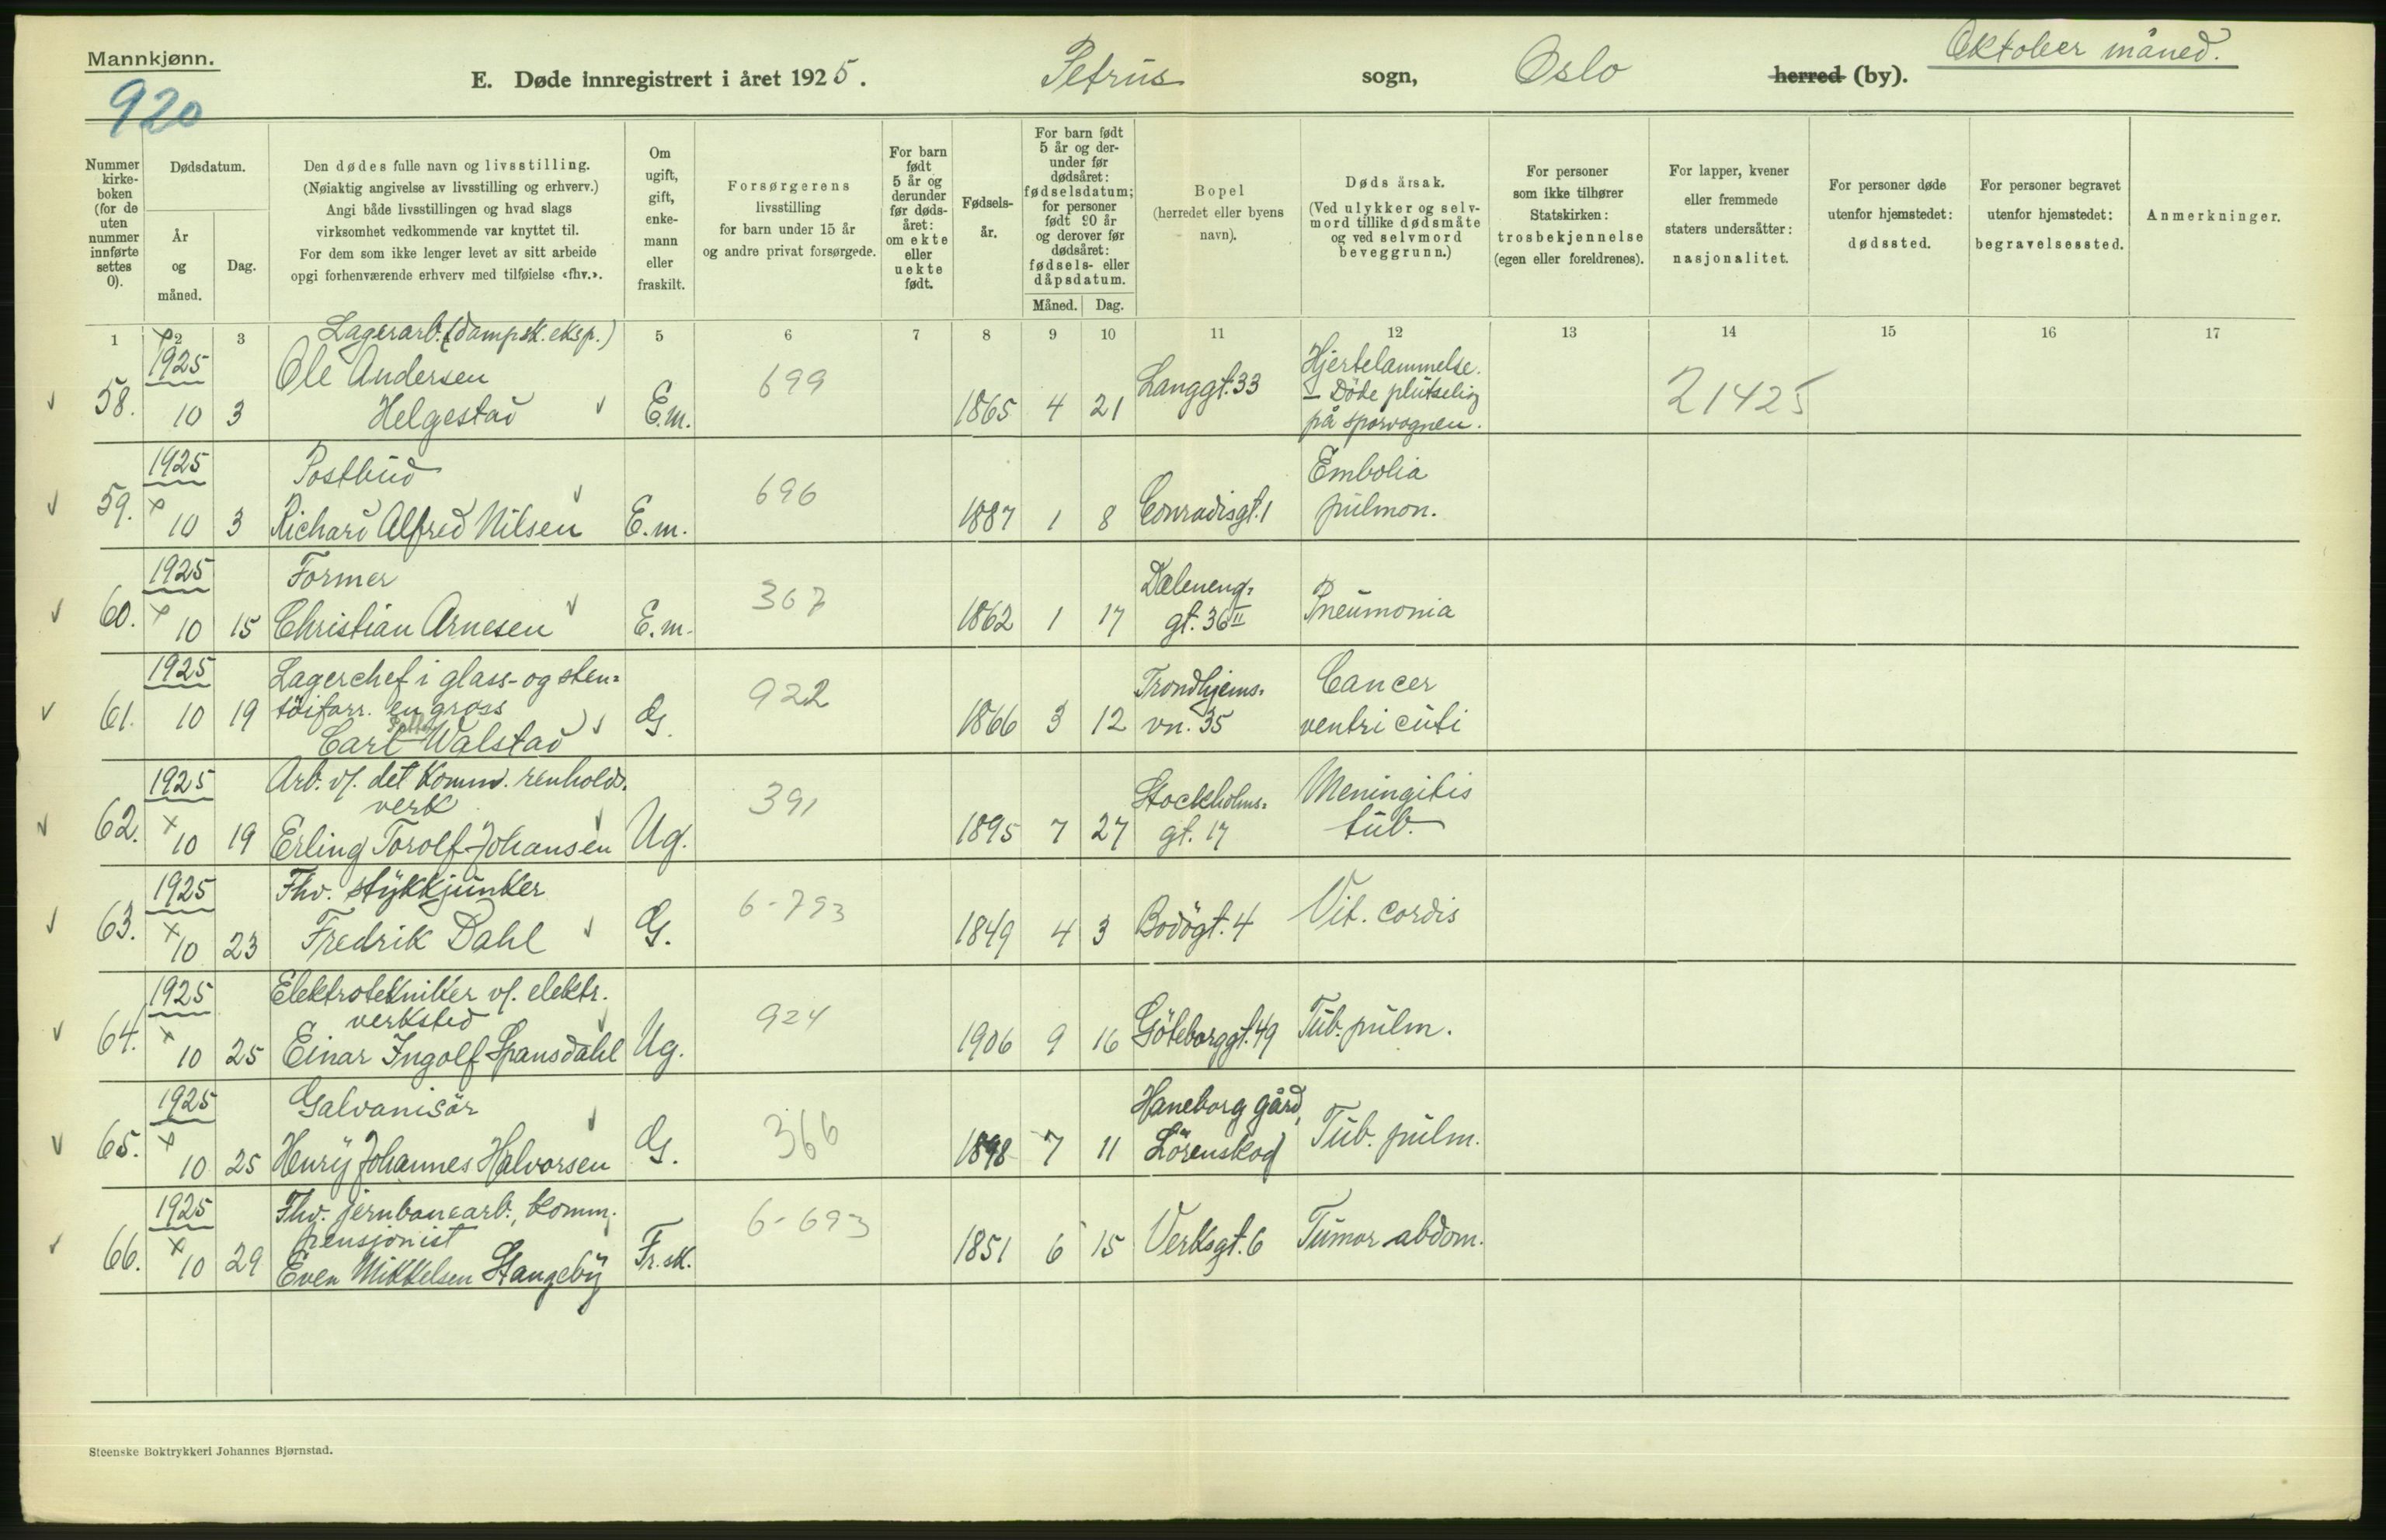 Mannkjønn.
920
E. Døde innregistrert i året 1925.
Petrus sogn, Oslo herred (by).
Oktober måned.
Nummer kirke-boken (for de uten nummer innførte settes 0).
Dødsdatum.
År og måned.
Dag.
Den dødes fulle navn og livsstilling.
(Nøiaktig angivelse av livsstilling og erhverv.)
Angi både livsstillingen og hvad slags
virksomhet vedkommende var knyttet til.
For dem som ikke lenger levet av sitt arbeide
opgi forhenværende erhverv med tilføielse «fhv.».
Om ugift, gift, enke-mann eller fraskilt.
Forsørgerens
livsstilling
for barn under 15 år
og andre privat forsørgede.
For barn født 5 år og derunder før døds-året: om ekte eller uekte født.
Fødsels-år.
For barn født 5 år og der-under før dødsåret: fødselsdatum; for personer født 90 år og derover før dødsåret: fødsels- eller dåpsdatum.
Måned. Dag.
Bopel
(herredet eller byens navn).
Døds årsak.
(Ved ulykker og selv-mord tillike dødsmåte og ved selvmord beveggrunn.)
For personer som ikke tilhører Statskirken: trosbekjennelse (egen eller foreldrenes).
For lapper, kvener eller fremmede staters undersåtter: nasjonalitet.
For personer døde utenfor hjemstedet: dødssted.
For personer begravet utenfor hjemstedet: begravelsessted.
Anmerkninger.
1 2 3 5 6 7 8 9 10 11 12 13 14 15 16 17
Lagerarb. (dampsk. eksp.)
58. 1925 10 3 Ole Andersen Helgestad E.m. 699 1865 4 21 Langgt. 33 Hjertelammelse. – Døde plutselig på sporvognen. 21425
Postbud
59. 1925 10 3 Richard Alfred Nilsen E.m. 696 1887 1 8 Conradisgt. 1 Embolia pulmon.
Former
60. 1925 10 15 Christian Arnesen E.m. 367 1862 1 17 Daleneng-gt. 36 II Pneumonia
Lagerchef i glass- og sten-
tøifarr. en gross
61. 1925 10 19 Carl Walstad G. 922 1866 3 12 Trondhjems-vn. 35 Cancer ventriculi
Arb. v/. det Komm. renhold.
verk
62. 1925 10 19 Erling Torolf Johansen Ug. 391 1895 7 27 Stockholms-gt. 17 Meningitis tub.
Fhv. stykkjunker
63. 1925 10 23 Fredrik Dahl G. 6-793 1849 4 3 Bodøgt. 4 Vit. cordis
Elektrotekniker v/. elektr.
verksted
64. 1925 10 25 Einar Ingolf Spansdahl Ug. 924 1906 9 16 Göteborggt. 49 Tub. pulm.
Galvanisør
65. 1925 10 25 Henry Johannes Halvorsen G. 366 1898 7 11 Haneborg gård, Lørenskog Tub. pulm.
Fhv. jernbanearb., Komm.
pensjonist
66. 1925 10 29 Even Mikkelsen Stangeby Fr.sk. 6-693 1851 6 15 Verksgt. 6 Tumor abdom.
Steenske Boktrykkeri Johannes Bjørnstad.